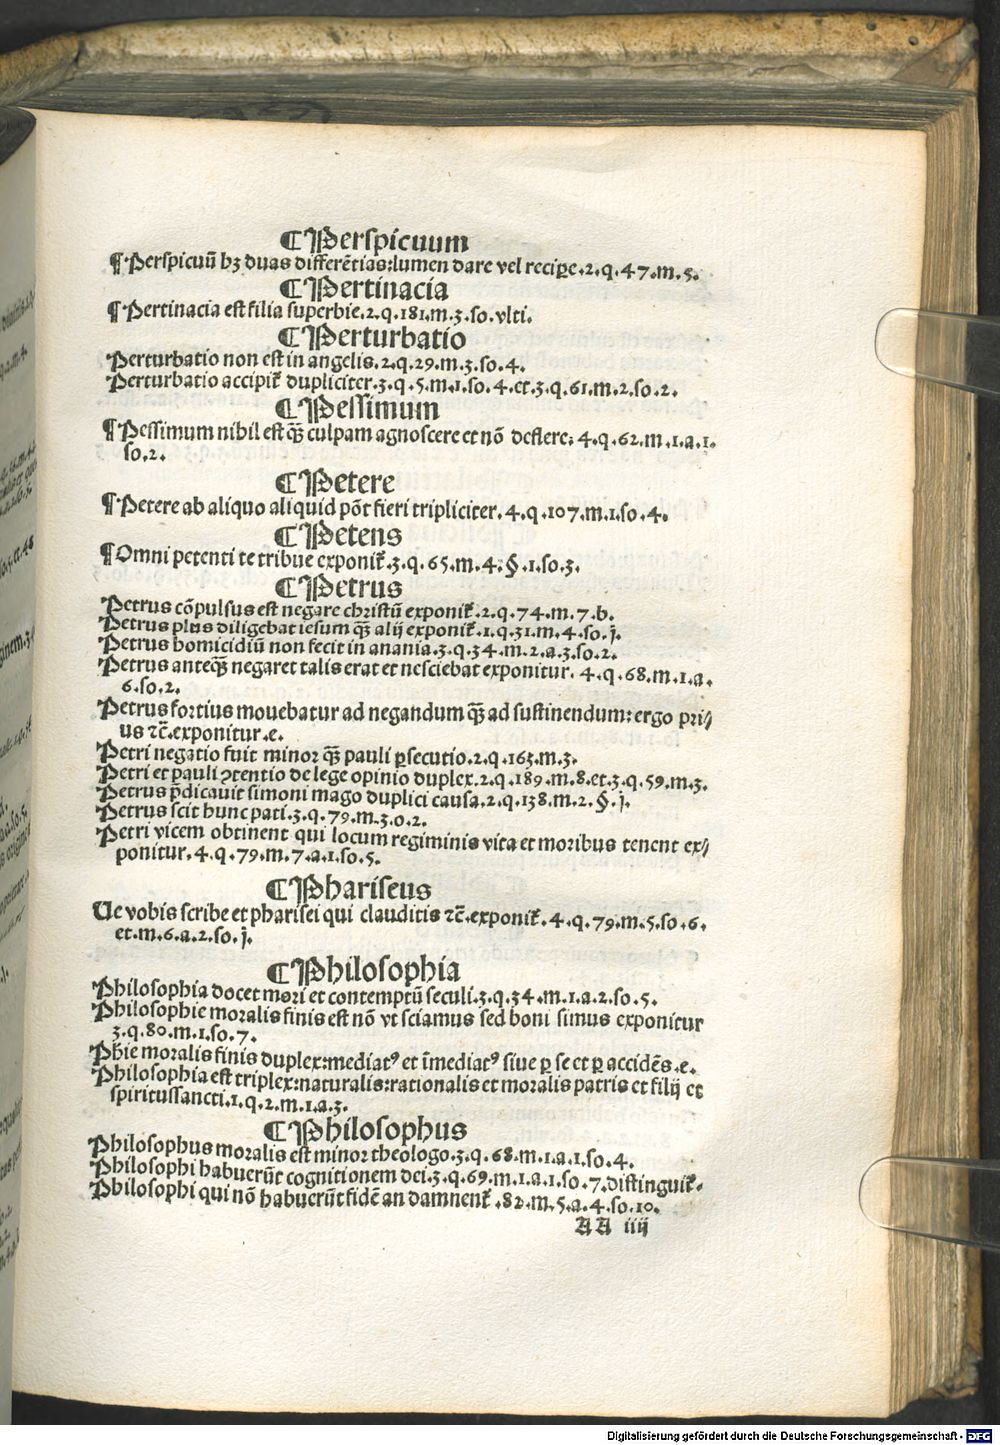 ¶ Perspicuum
¶ Perspicuū hꝫ duas differētias:lumen dare vel recipe.2.q.47.m.5.
¶ Pertinacia
¶ Pertinacia est filia superbie.2.q.181.m.3.so.vlti.
¶ Perturbatio
Perturbatio non est in angelis.2.q.29.m.3.so.4.
Perturbatio accipit᷑ dupliciter.3.q.5.m.1.so.4.et.3.q.61.m.2.so.2.
¶ Pessimum
¶ Pessimum nihil est qᷓꝫ culpam agnoscere et nō deflere. 4.q.62.m.1.a.1.
so.2.
¶ Petere
¶ Petere ab aliquo aliquid pōt fieri tripliciter.4.q.107.m.1.so.4.
¶ Petens
¶ Omni petenti te tribue exponit᷑.3.q.65.m.4.§.1.so.3.
¶ Petrus
Petrus cōpulsus est negare christū exponit᷑.2.q.74.m.7.b.
Petrus plus diligebat iesum qᷓꝫ alij exponit᷑.1.q.31.m.4.so.j.
Petrus homicidiū non fecit in anania.3.q.34.m.2.a.3.so.2.
Petrus anteqᷓꝫ negaret talis erat et nesciebat exponitur. 4.q.68.m.1.a.
6.so.2.
Petrus fortius mouebatur ad negandum qᷓꝫ ad sustinendum:ergo pri⸗
us ⁊c̄.exponitur.e.
Petri negatio fuit minor qᷓꝫ pauli ꝑsecutio.2.q.163.m.3.
Petri et pauli ꝯtentio de lege opinio duplex.2.q.189.m.8.et.3.q.59.m.3.
Petrus p̄dicauit simoni mago duplici causa.2.q.138.m.2.§.j.
Petrus scit hunc pati.3.q.79.m.3.o.2.
Petri vicem obtinent qui locum regiminis vita et moribus tenent ex⸗
ponitur.4.q.79.m.7.a.1.so.5.
¶ Phariseus
Ue vobis scribe et pharisei qui clauditis ⁊c̄.exponit᷑.4.q.79.m.5.so.6.
et.m.6.a.2.so.j.
¶ Philosophia
Philosophia docet mori et contemptū seculi.3.q.34.m.1.a.2.so.5.
Philosophie moralis finis est nō vt sciamus sed boni simus exponitur
3.q.80.m.1.so.7.
Phie moralis finis duplex:mediatꝰ et īmediatꝰ siue ꝑ se et ꝑ accidēs.e.
Philosophia est triplex:naturalis:rationalis et moralis patris et filij et
spiritussancti.1.q.2.m.1.a.3.
¶ Philosophus
Philosophus moralis est minor theologo.3.q.68.m.1.a.1.so.4.
Philosophi habuerūt cognitionem dei.3.q.69.m.1.a.1.so.7.distinguit᷑.
Philosophi qui nō habuerūt fidē an damnent᷑.82.m.5.a.4.so.10.
AA iiij
Digitalisierung gefördert durch die Deutsche Forschungsgemeinschaft - DFG